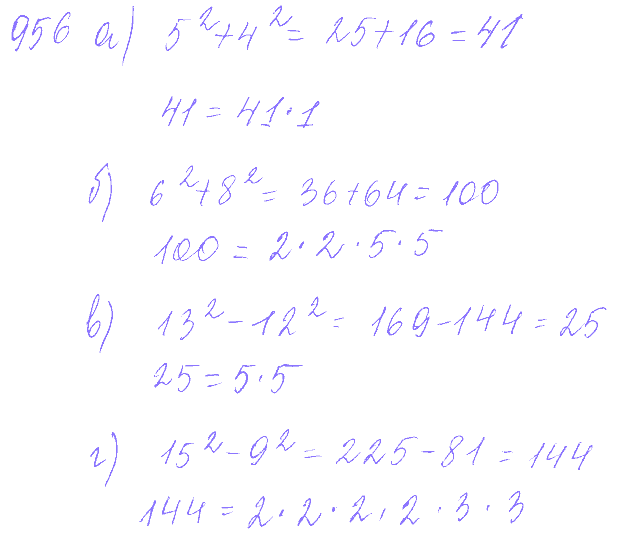 956 а) 5²+4² = 25+16 = 41
41 = 41·1
б) 6²+8² = 36+64 = 100
100 = 2·2·5·5
в) 13²-12² = 169-144 = 25
25 = 5·5
г) 15²-9² = 225-81 = 144
144 = 2·2·2·2·3·3